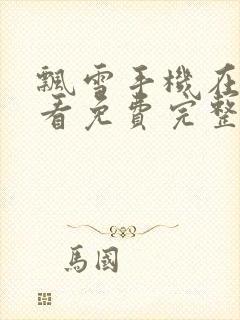 飄雪手機在
看免費完整
馬國